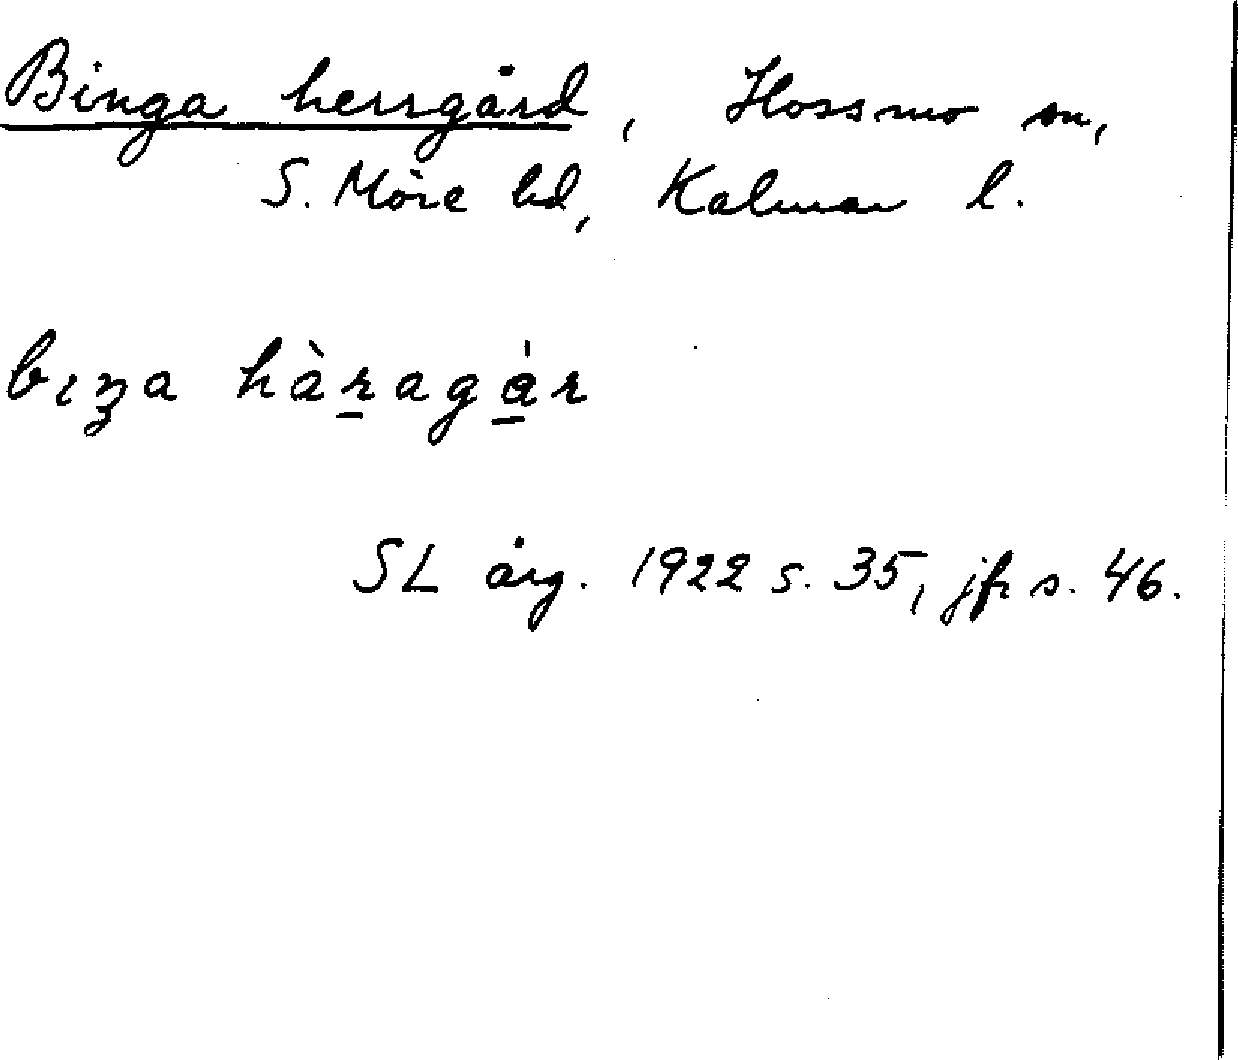 Binga herrgård, Hossmo sn,
S. Möre hd, Kalmar l.
bıŋa hàr̲agà̲r
SL årg. 1922 s. 35, jfr s. 46.